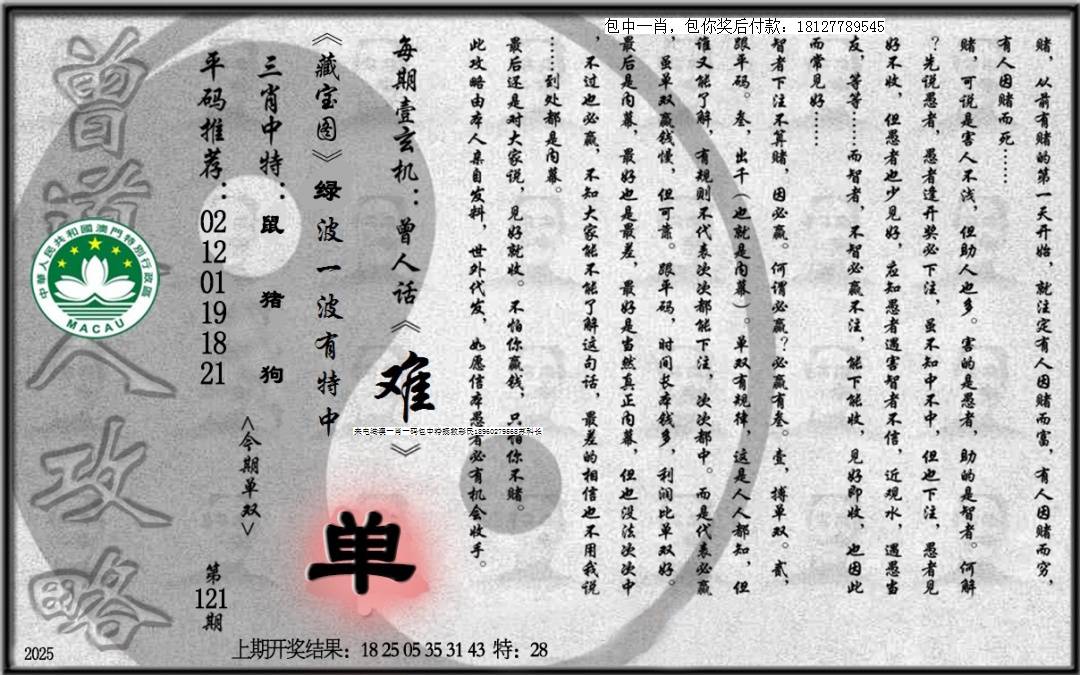 包中一肖，包你奖后付款：18127789545
赌，从前有赌的第一天开始，就注定有人因赌而富，有人因赌而穷，
有人因赌而死……
赌，可说是害人不浅，但助人也多。害的是愚者，助的是智者。何解
？先说愚者，愚者逢开奖必下注，虽不知中不中，但也下注，愚者见
好不收，但愚者也少见好，应知愚者遇害智者不信，近观水，遇愚当
友，等等……而智者，不智必赢不注，能下能收，见好即收，也因此
而常见好……
智者下注不算赌，因必赢。何谓必赢？必赢有叁。壹，搏单双。贰，
跟平码。叁，出千（也就是内幕）。单双有规律，这是人人都知，但
谁又能了解，有规则不代表次次都能下注，次次都中。而是代表必赢
，虽单双赢钱慢，但可靠。跟平码，时间长本钱多，利润比单双好。
最后是内幕，最好也是最差，最好是当然真正内幕，但也没法次次中
，不过也必赢，不知大家能不能了解这句话，最差的相信也不用我说
……到处都是内幕。
最后还是对大家说，见好就收。不怕你赢钱，只怕你不赌。
此攻略由本人亲自发料，世外代发，如愿信本愚者必有机会收手。
每期壹玄机：曾人话《难》
《藏宝图》绿波一波有特中
三肖中特：鼠 猪 狗
平码推荐：02 12 01 19 18 21
<今期单双>
单
第121期
曾道人攻略
中華人民共和國澳門特別行政區
MACAU
2025
上期开奖结果：18 25 05 35 31 43 特：28